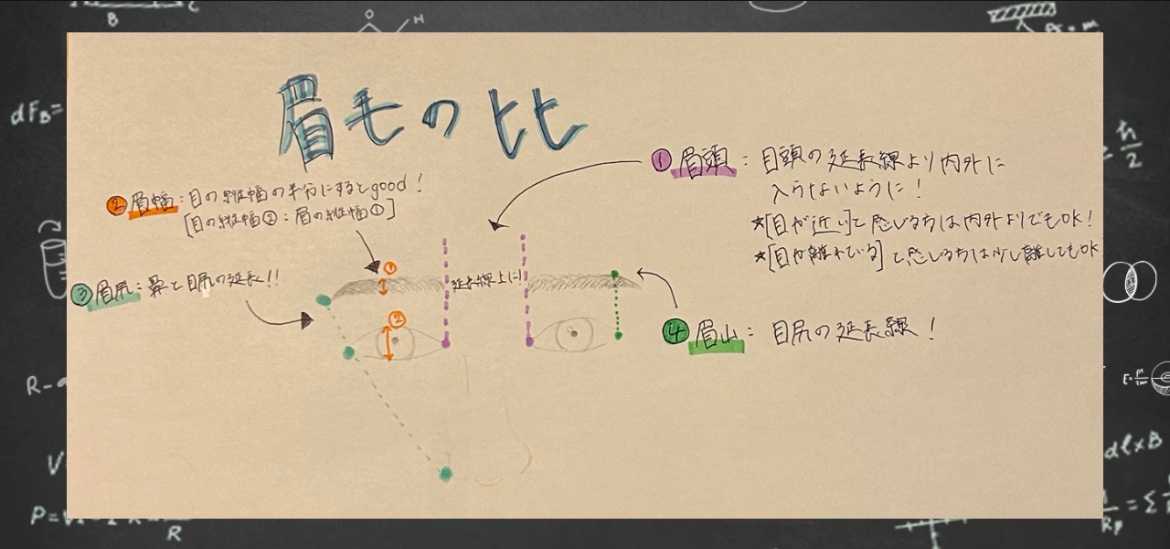 眉毛の比
①眉頭:目頭の延長線より内外に
入らないように!
*[目が近い]と感じる方は内外よりでもOK!
*[目が離れている]と感じる方は少し離してもOK
②眉幅:目の縦幅の半分にするとgood!
[目の縦幅②:眉の縦幅①]
③眉尻:鼻と目尻の延長!!
④眉山:目尻の延長線!
①
②
延長線上に!
B
O
H
dFB=
ħ
2
R-
V
P=
R
dl×B
Rp
=Σ